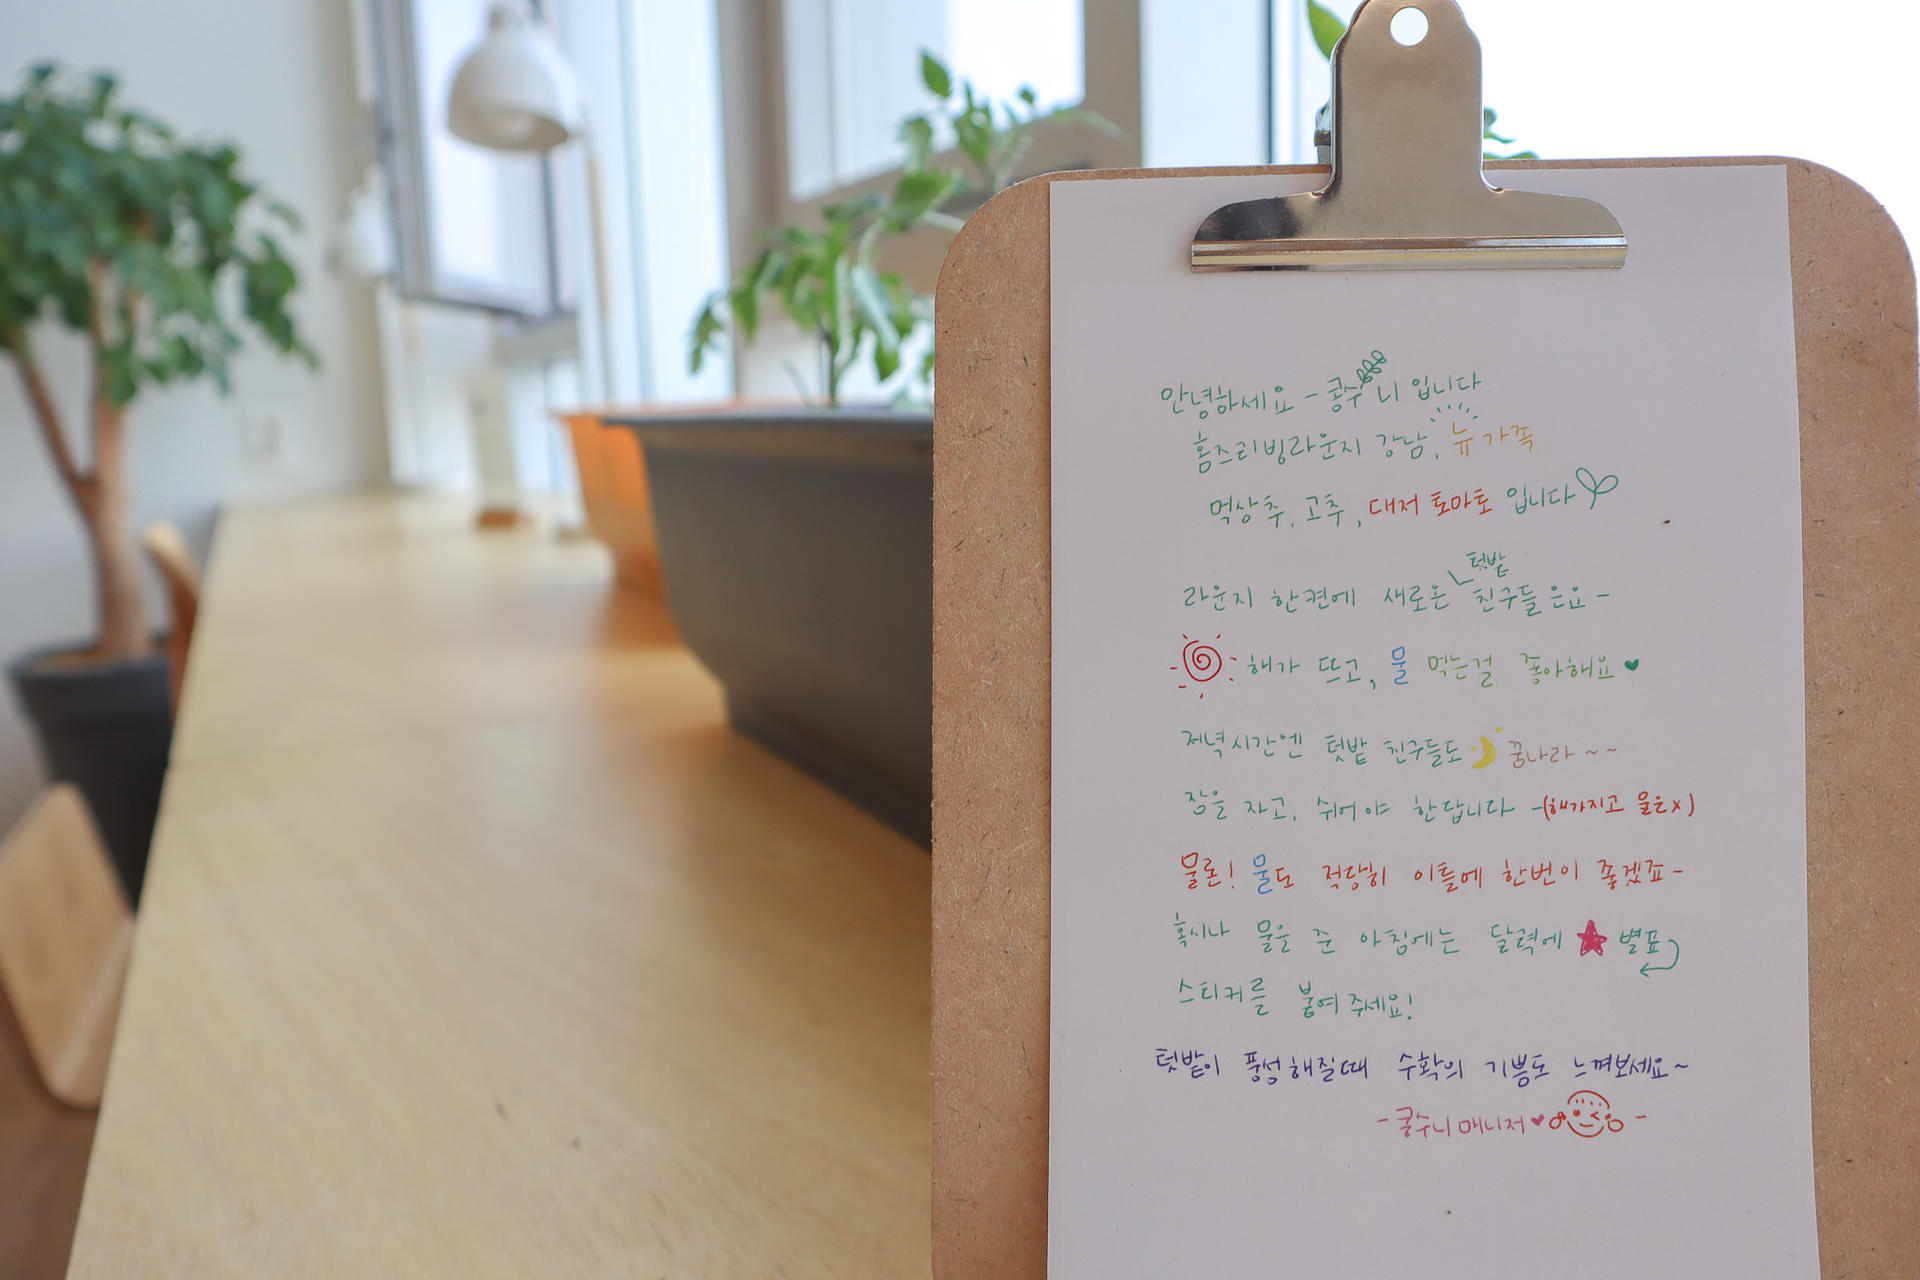 안녕하세요 - 콩수니 입니다
홈즈리빙라운지 강남, 뉴 가족
먹상추, 고추, 대저 토마토 입니다
라운지 한켠에 새로운 텃밭 친구들은요 -
해가 뜨고, 물 먹는걸 좋아해요 ♥
저녁시간엔 텃밭 친구들도 꿈나라 ~ ~
잠을 자고, 쉬어야 한답니다 - (해가지고 물은 x)
물론! 물도 적당히 이틀에 한번이 좋겠죠 -
혹시나 물을 준 아침에는 달력에 ★ 별표
스티커를 붙여 주세요!
텃밭이 풍성해질때 수확의 기쁨도 느껴보세요 ~
- 콩수니 매니저 ♥ -